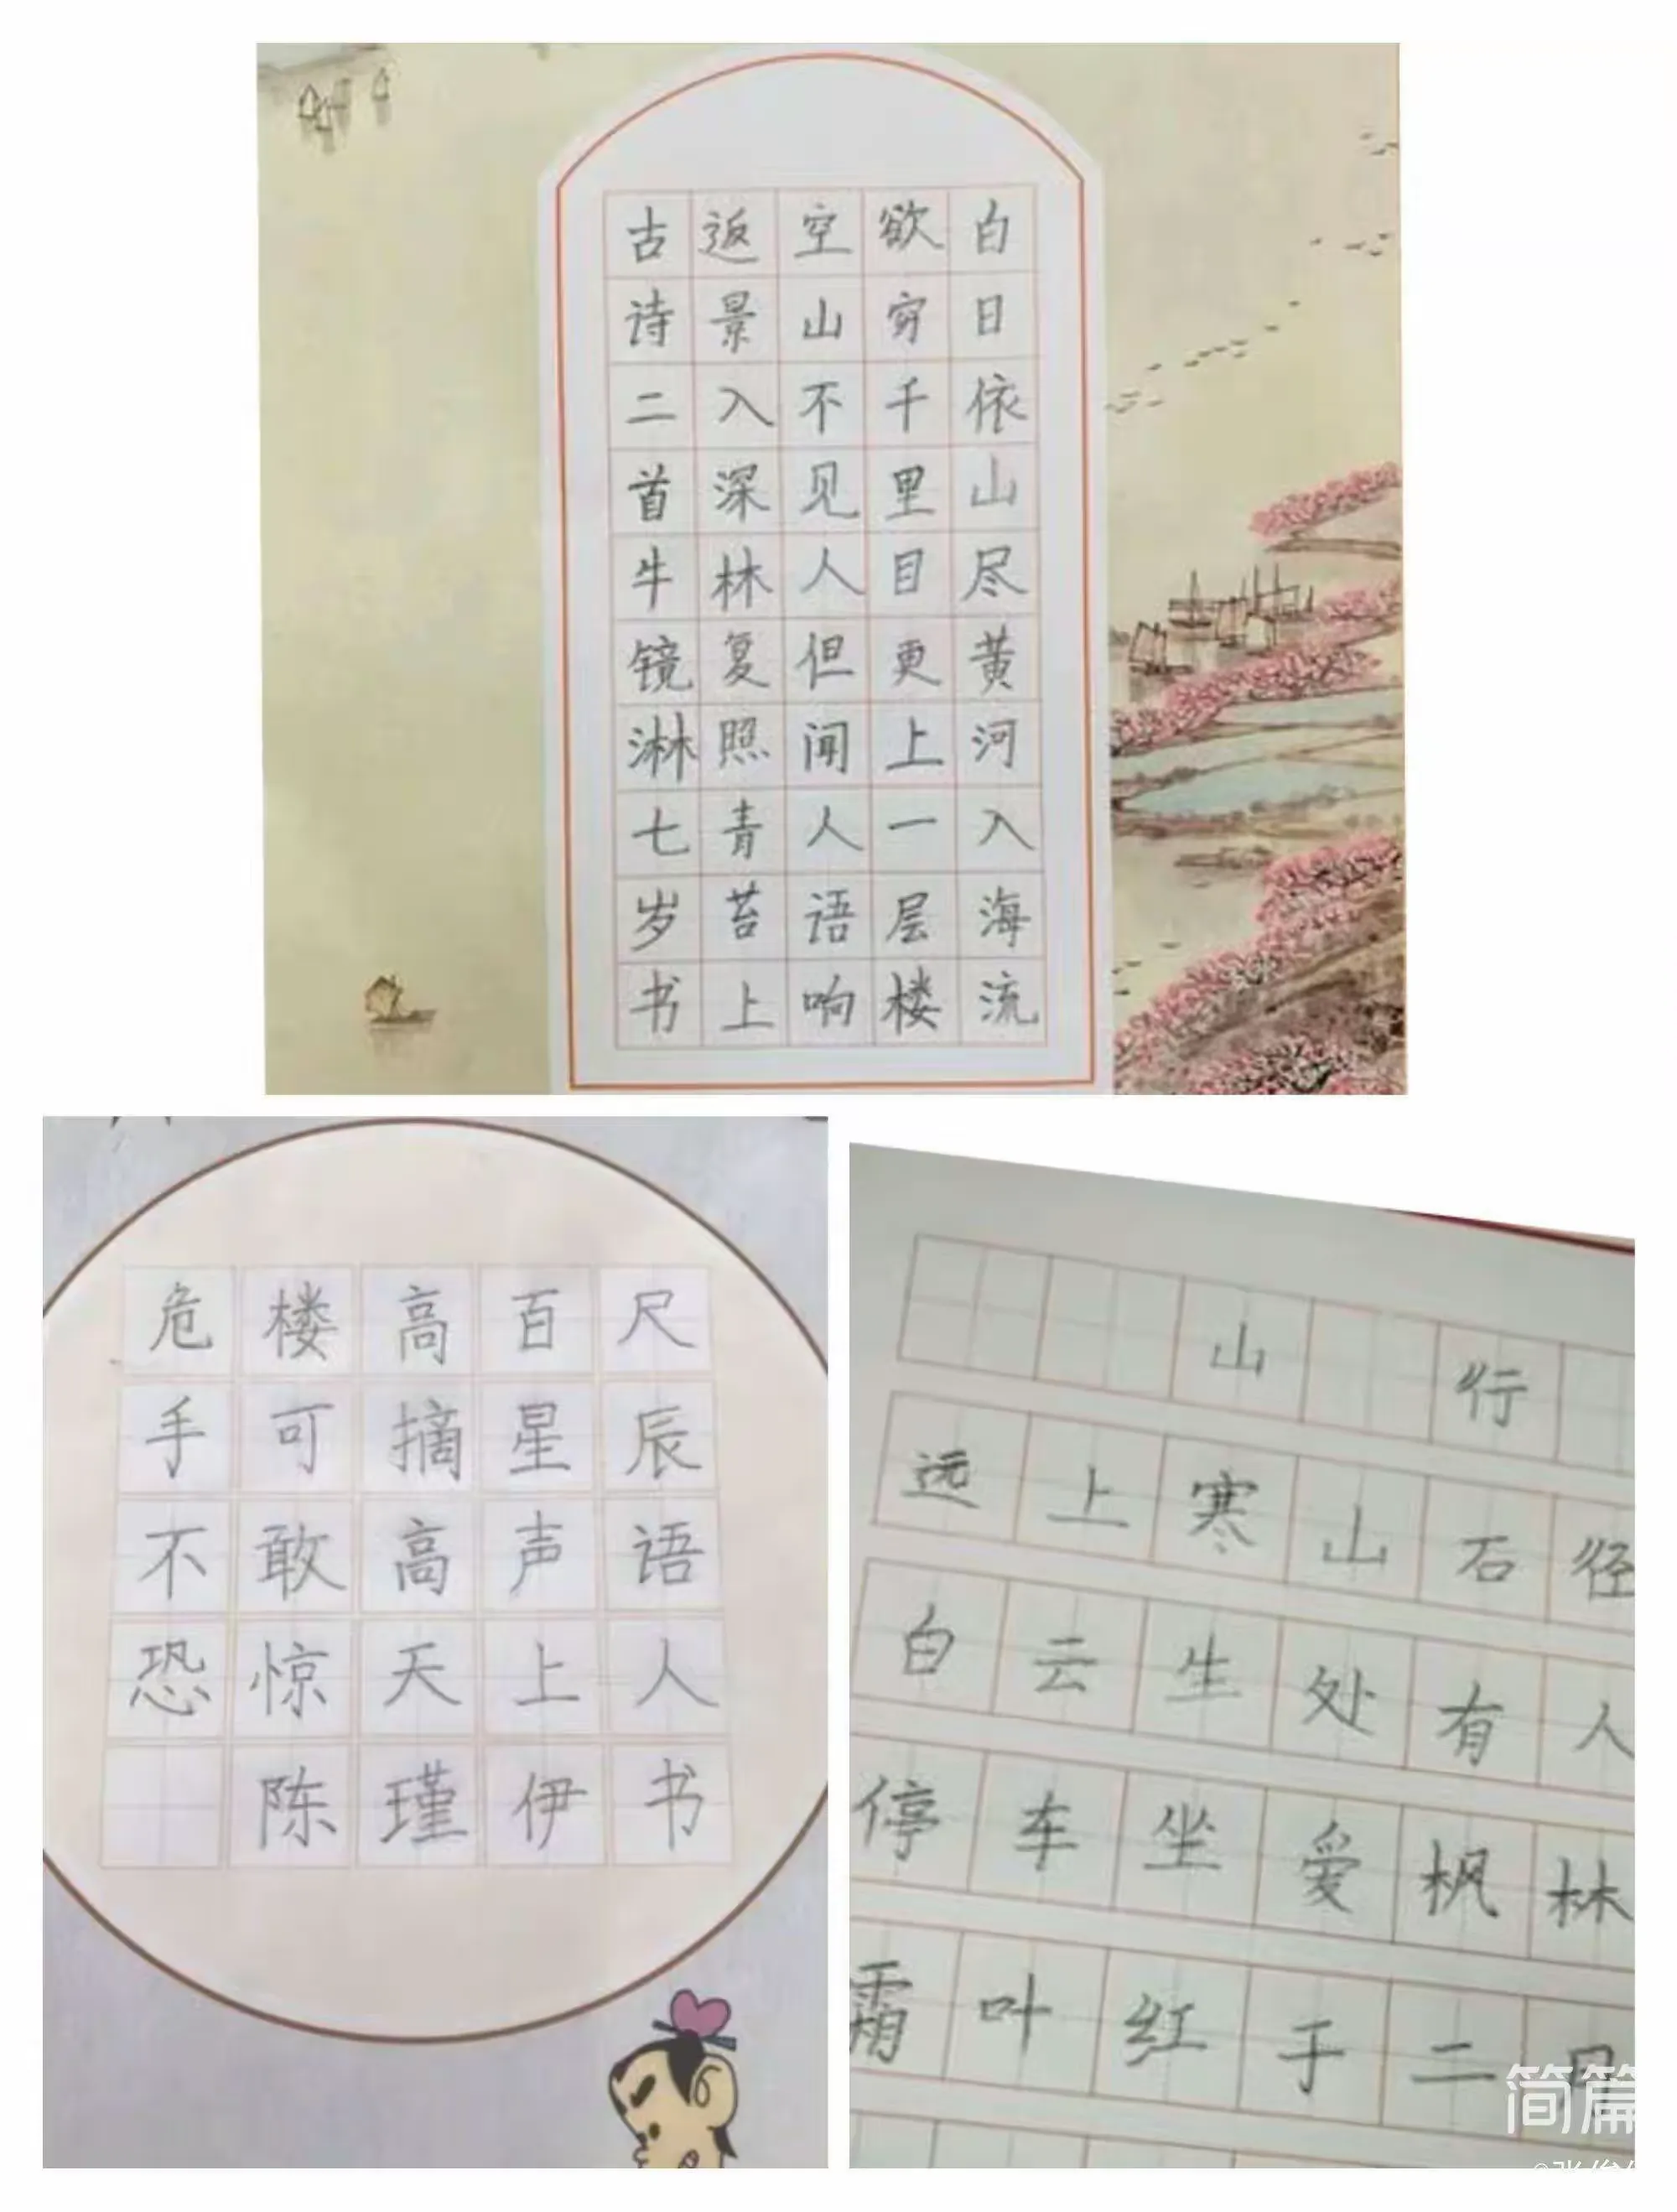 白日依山尽黄河入海流
欲穷千里目更上一层楼
空山不见人但闻人语响
返景入深林复照青苔上
古诗二首牛镜淋七岁书
危楼高百尺
手可摘星辰
不敢高声语
恐惊天上人
陈瑾伊书
山行
远上寒山石径
白云生处有人
停车坐爱枫林
霜叶红于二月
简篇